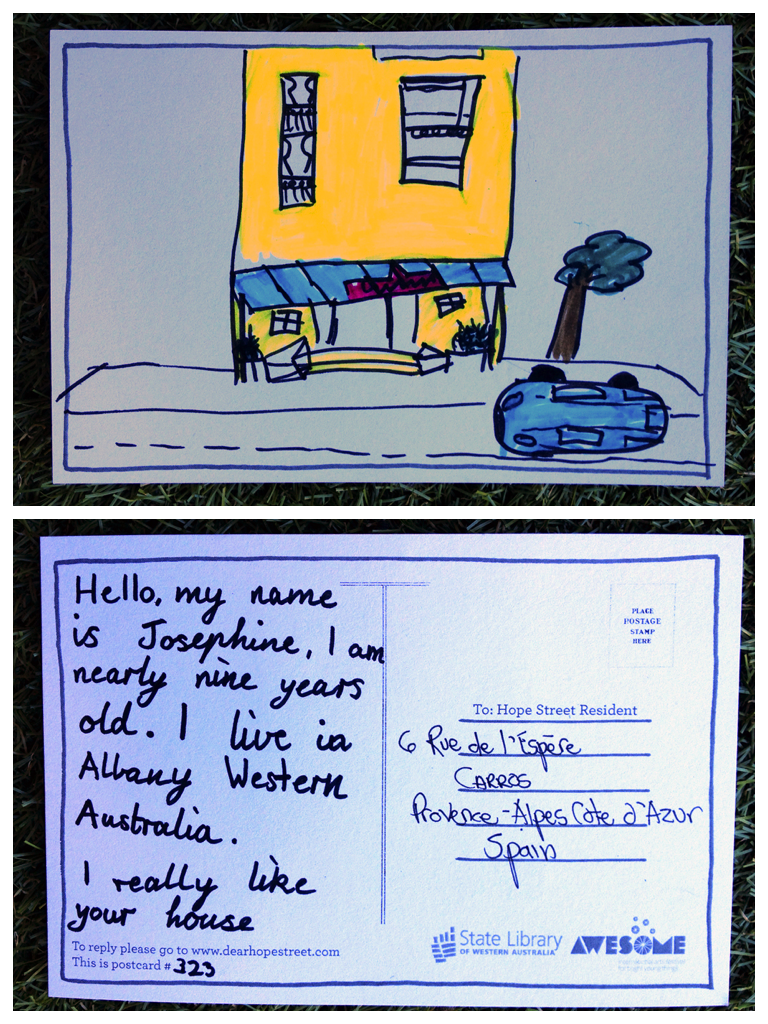 Hello, my name
is Josephine, I am
nearly nine years
old. I live in
Albany Western
Australia.
I really like
your house
To reply please go to www.dearhopestreet.com
This is postcard # 323
PLACE
POSTAGE
STAMP
HERE
To: Hope Street Resident
6 Rue de l'Espére
CARROS
Provence-Alpes Côte d'Azur
Spain
State Library
OF WESTERN AUSTRALIA
AWESOME